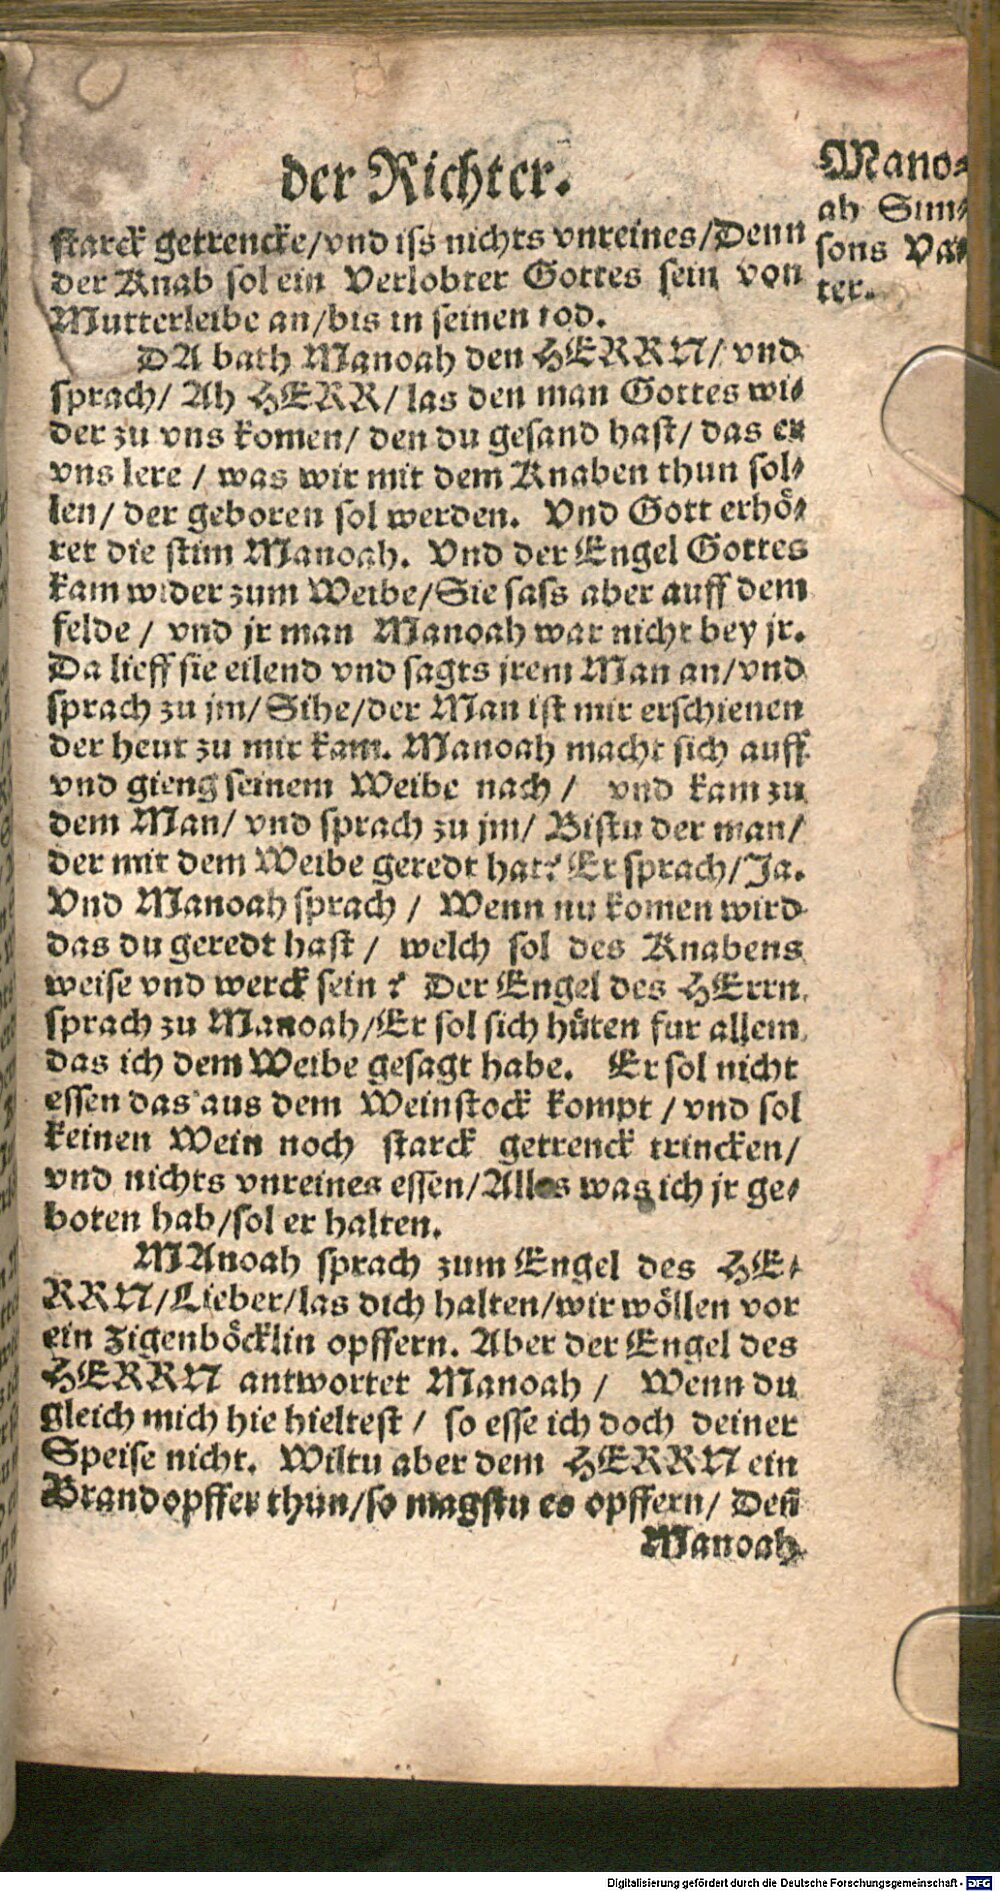 der Richter.
starck getrencke/vnd iss nichts vnreines/Denn
der Knab sol ein Verlobter Gottes sein von
Mutterleibe an/bis in seinen tod.
DA bath Manoah den HERRN/ vnd
sprach/ Ah HERR/ las den man Gottes wi⸗
der zu vns komen/ den du gesand hast/ das er
vns lere / was wir mit dem Knaben thun sol⸗
len/ der geboren sol werden. Vnd Gott erhö⸗
ret die stim Manoah. Vnd der Engel Gottes
kam wider zum Weibe/Sie sass aber auff dem
felde / vnd jr man Manoah war nicht bey jr.
Da lieff sie eilend vnd sagts jrem Man an/vnd
sprach zu jm/ Sihe/der Man ist mir erschienen
der heut zu mir kam. Manoah macht sich auff
vnd gieng seinem Weibe nach / vnd kam zu
dem Man/ vnd sprach zu jm/ Bistu der man/
der mit dem Weibe geredt hat? Er sprach/Ja.
Vnd Manoah sprach / Wenn nu komen wird
das du geredt hast / welch sol des Knabens
weise vnd werck sein ? Der Engel des HErrn
sprach zu Manoah/Er sol sich hüten fur allem
das ich dem Weibe gesagt habe. Er sol nicht
essen das aus dem Weinstock kompt / vnd sol
keinen Wein noch starck getrenck trincken/
vnd nichts vnreines essen/Alles was ich jr ge⸗
boten hab/sol er halten.
MAnoah sprach zum Engel des HE⸗
RRN/Lieber/las dich halten/wir wöllen vor
ein Zigenböcklin opffern. Aber der Engel des
HERRN antwortet Manoah / Wenn du
gleich mich hie hieltest / so esse ich doch deiner
Speise nicht. Wiltu aber dem HERRN ein
Brandopffer thun/so magstu es opffern/ Den̄
Manoah
Mano⸗
ah Sim⸗
sons Va⸗
ter.
Digitalisierung gefördert durch die Deutsche Forschungsgemeinschaft - DFG